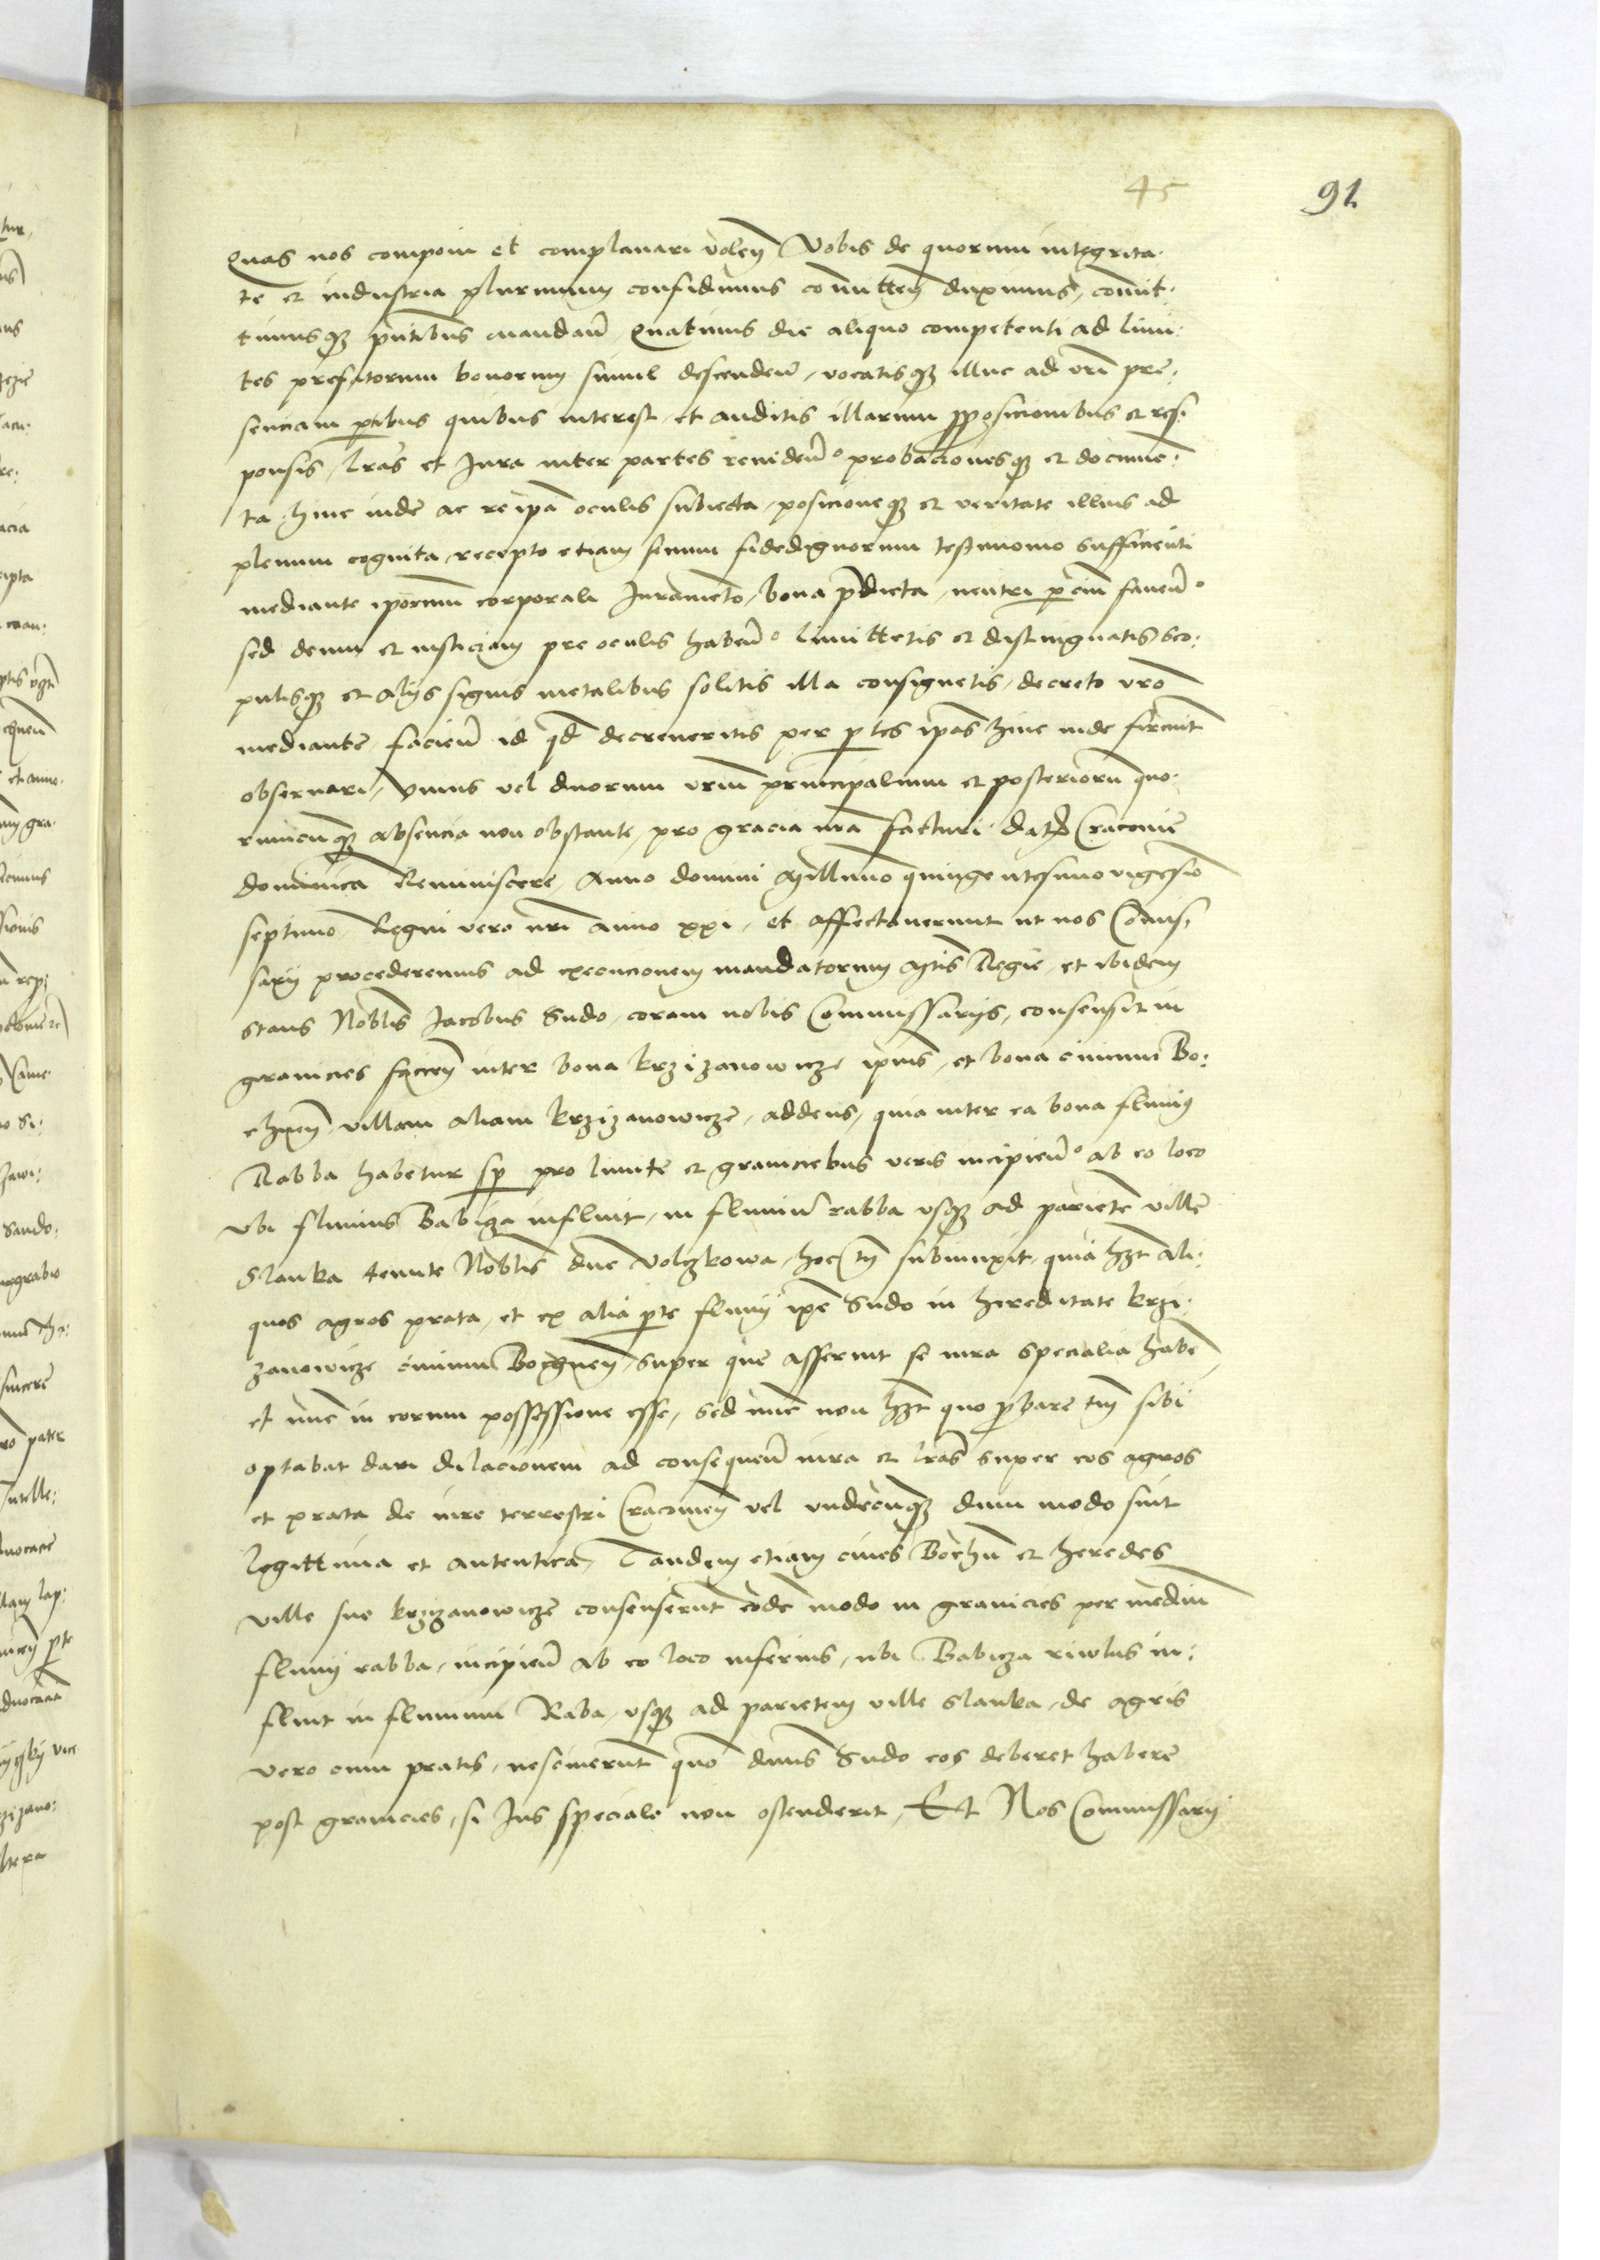 45
91.
Quas nos componi et complanari volen̄ Vobis de quorum integrita-
te et industria plurimum confidimus com̄itten̄ duximus, com̄it-
timusq₃ pn̄tibus mandan̄ Quatinus die aliquo competenti ad limi-
tes prefatorum bonorum simul descenden̄, vocatisq₃ illuc ad vrā pre-
senciam ptibus quibus interest, et auditis illarum ꝓposicionibus et res-
ponsis, lrās et Iura inter partes reviden̄ probacionesq₃ et documē-
ta, hinc inde ac re ipā oculis subiecta, posicioneq₃ et veritate illius ad
plenum cognita, recepto etiam senum fidedignorum testimonio sufficienti
mediante ipōrum corporali Iuramēto, bona pdicta, neutri pcium faven̄
sed deum et iusticiam pre oculis haben̄ limittetis et distinguatis, sco-
pulisq₃ et alijs signis metalibus solitis illa consignetis, decreto vrō
mediante, facien̄ id qd decreveritis per ptes ipās hinc inde firmit
observari, Unius vel duorum vrūm principalium et posteriorū quo-
rumcunq₃ absencia non obstante, pro gracia nrā facturi. Dat Cracovie
dominica Reminiscere, Anno domini Millimo quingentesimo vigesimo
septimo Regni vero nrī anno xxi, et affectaverunt ut nos Com̄is-
sarij procederemus ad execucionem mandatorum Mtīs Regie, et ibidem
stans Noblīs Jacobus Sudo, coram nobis Commissarijs, consensit in
granicies facien̄ inter bona Krzizanowicze ipīus, et bona civium Bo-
chnen̄ villam aliam Krzizanowicze, addens, quia inter ea bona fluvius
Rabba habetur sp pro limite et graniciebus veris incipien̄ ab eo loco
Ubi fluvius Babiza influit, in fluviū rabba usq₃ ad parietē ville
Slanka tenute Noblīs dnē Volczkowa, hoc tn̄ subiunxit, quia hꝫt ali-
quos agros prata, et ex alia pte fluvij ipē Sudo in hereditate Krzi-
zanowicze civium Bochnen̄, super que asserit se iura specialia habē
et nūc in eorum possessione esse, sed nūc non hꝫt quo pbare tn̄ sibi
optabat dari dilacionem ad consequen̄ iura et lrās super eos agros
et prata de iure terrestri Cracovien̄ vel undecunq₃ dum modo sint
legittima et autentica, Tandem etiam cives Bochn̄ et heredes
ville sue Krzizanowicze consenserunt eodē modo in granicies per mediū
fluvij rabba, incipien̄ ab eo loco inferius, ubi Babicza rivulus in-
fluit in fluvium Raba, usq₃ ad parietem ville Slanka, de agris
vero cum pratis, nesciverunt quo dnūs Sudo eos deberet habere
post granicies, si Ius speciale non ostenderit, Et Nos Commissarij